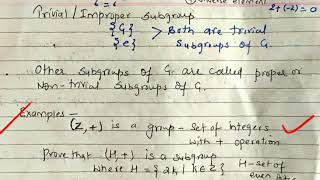 6 = 6
inverse element
2+(-2)=0
Trivial / Improper Subgroup
{G} > Both are trivial
{e} Subgroups of G.
Other Subgroups of G are called proper or
Non-trivial Subgroups of G.
Examples -
(Z,+) is a group - Set of integers
with + operation
Prove that (H,+) is a subgroup
where H = {2k | k∈Z}
H - set of
even